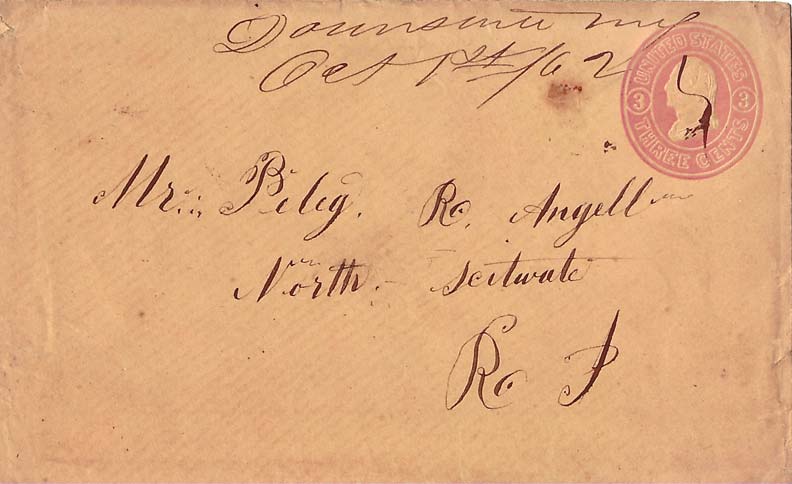 Downsville NY
Oct 1st /62
UNITED STATES
3 3
THREE CENTS
Mr. Peleg. R. Angell
North. Scituate
R I